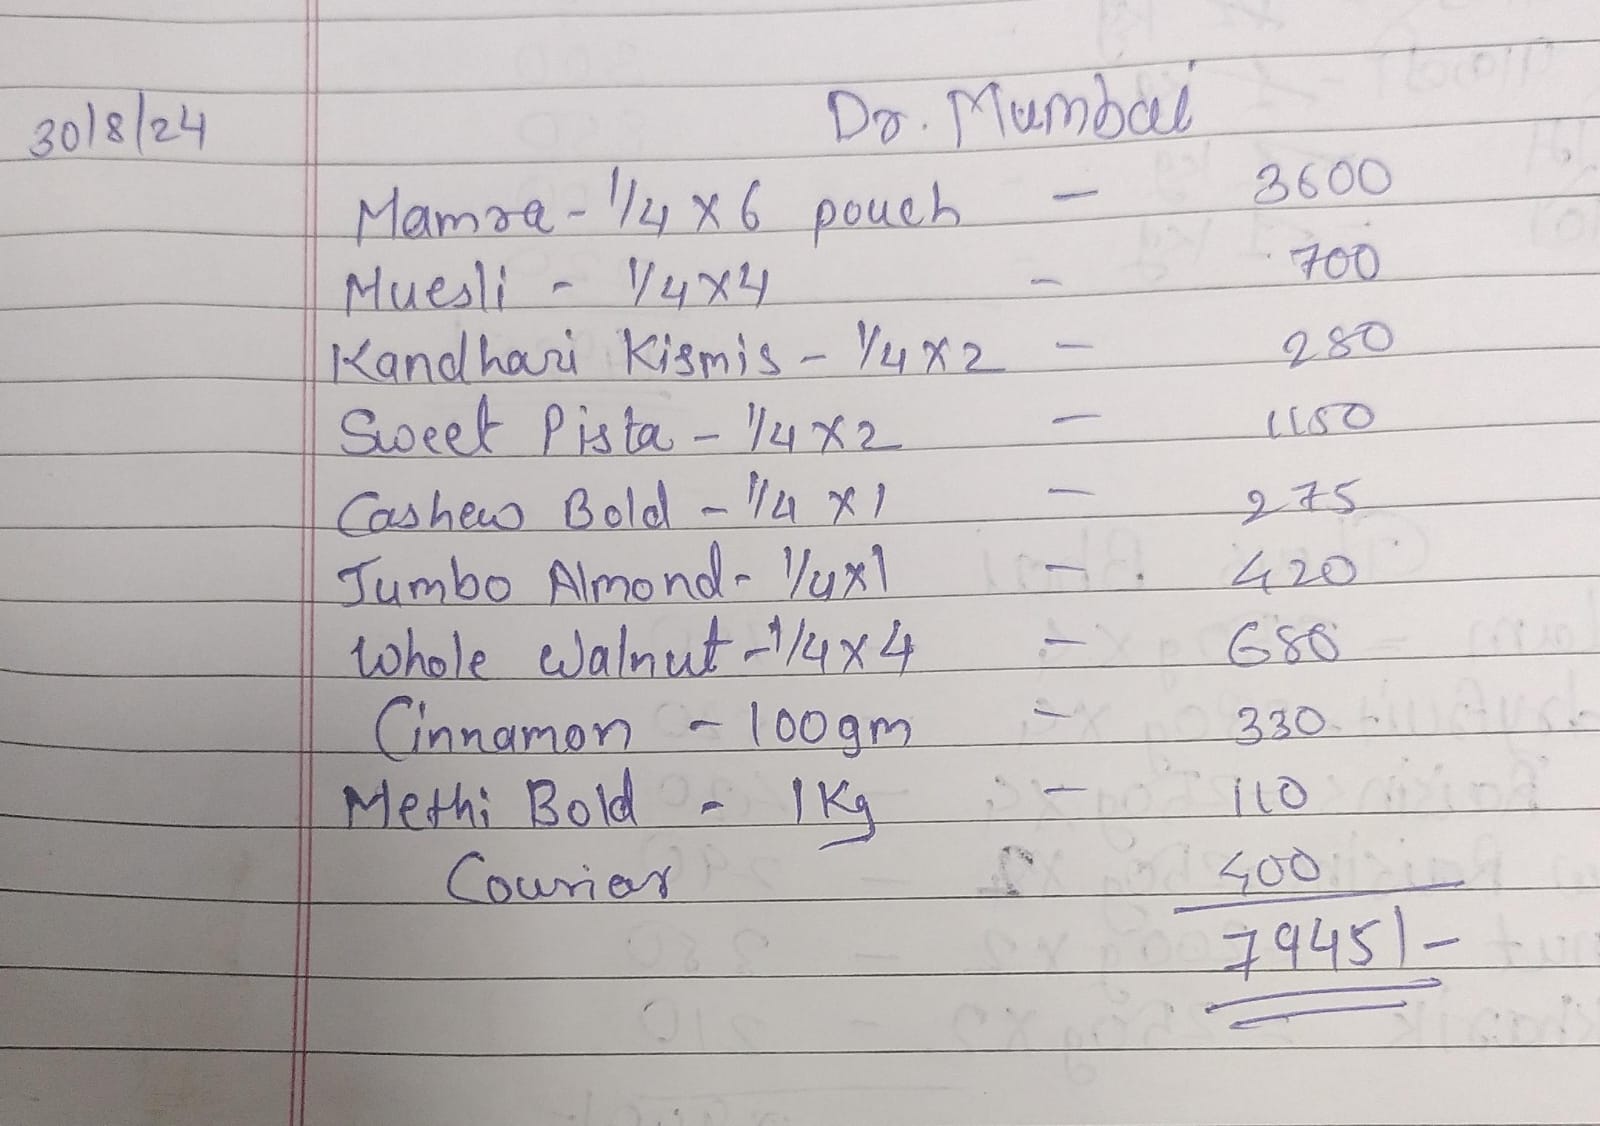 30/8/24 Dr. Mumbai
Mamra - 1/4 x 6 pouch - 3600
Muesli - 1/4 x 4 - 700
Kandhari Kismis - 1/4 x 2 - 280
Sweet Pista - 1/4 x 2 - 1150
Cashew Bold - 1/4 x 1 - 275
Jumbo Almond - 1/4 x 1 - 420
Whole Walnut - 1/4 x 4 - 680
Cinnamon - 100gm - 330
Methi Bold - 1Kg - 110
Courier 400
7945/-